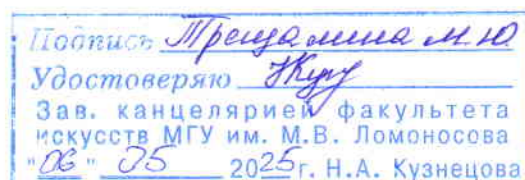 Подпись Трещалина М.Ю.
Удостоверяю
Зав. канцелярией факультета
искусств МГУ им. М.В. Ломоносова
"06" 05 2025г. Н.А. Кузнецова